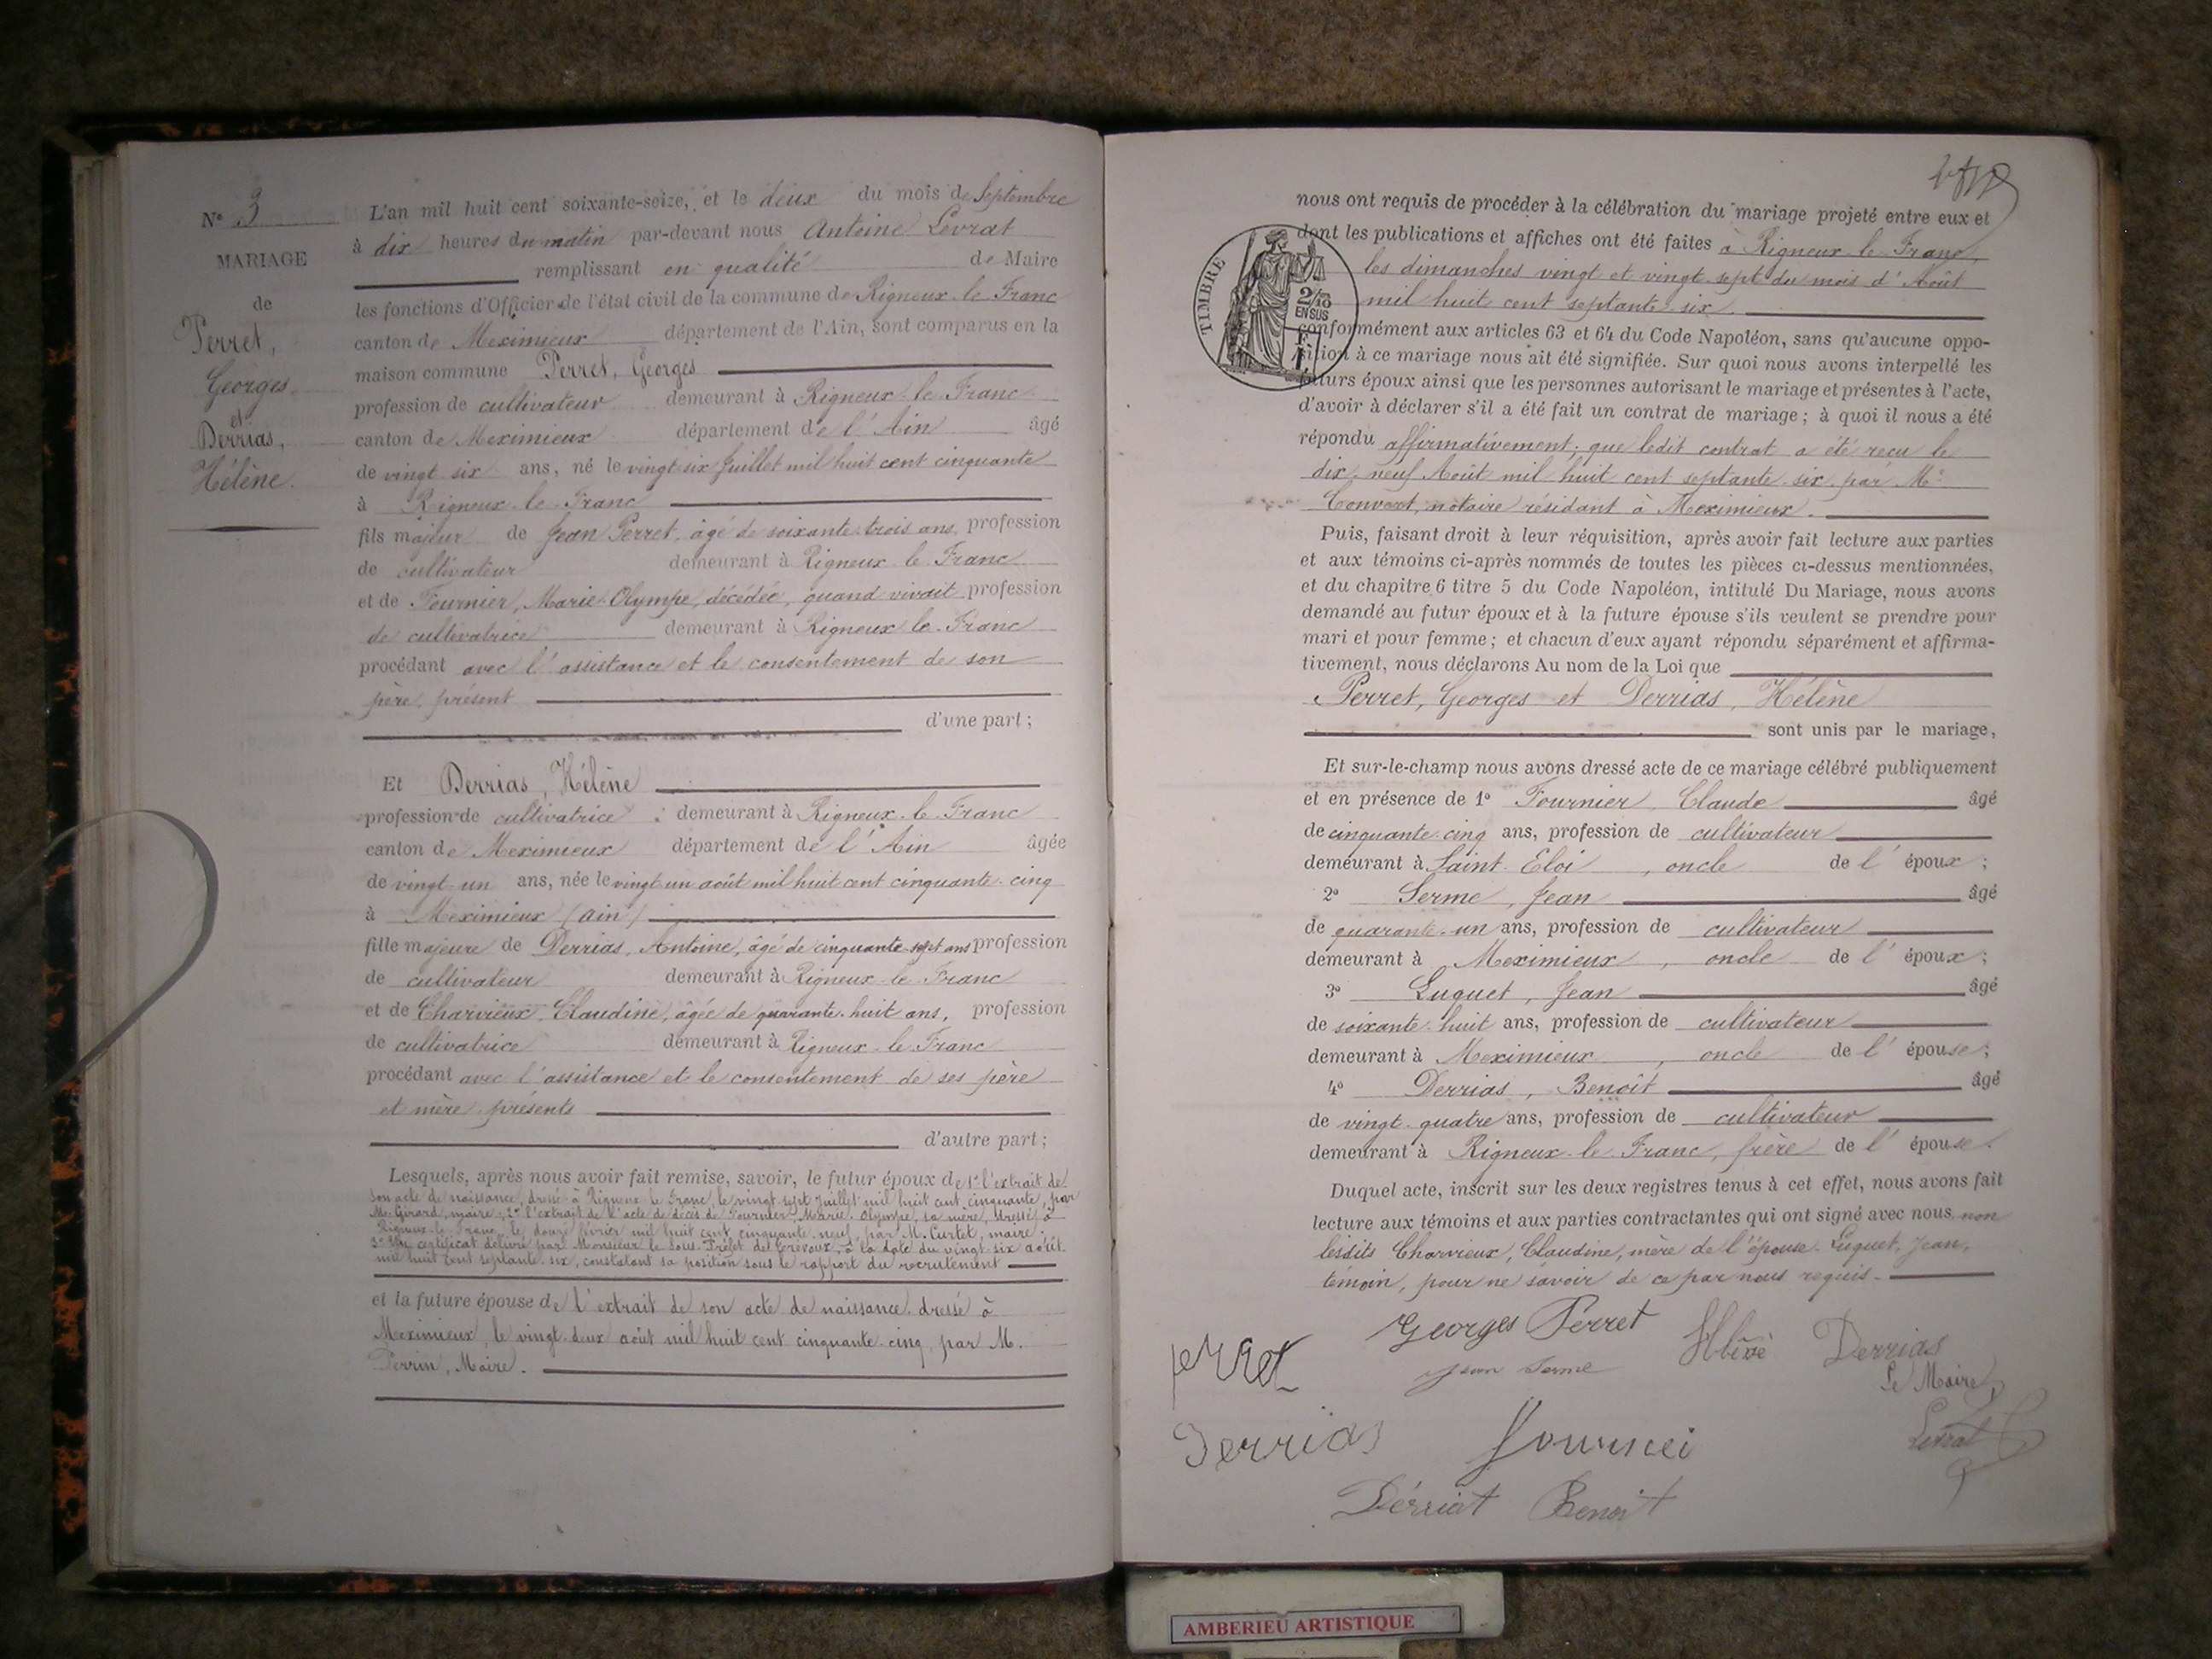 N° 3
MARIAGE
de
Perret,
Georges
et
Derrias,
Hélène.
L'an mil huit cent soixante-seize, et le deux du mois de Septembre
à dix heures du matin par-devant nous Antoine Levrat
remplissant en qualité de Maire
les fonctions d'Officier de l'état civil de la commune de Rigneux-le-Franc
canton de Meximieux département de l'Ain, sont comparus en la
maison commune Perret, Georges
profession de cultivateur demeurant à Rigneux-le-Franc
canton de Meximieux département de l'Ain âgé
de vingt six ans, né le vingt-six Juillet mil huit cent cinquante
à Rigneux-le-Franc
fils majeur de Jean Perret, âgé de soixante-trois ans, profession
de cultivateur demeurant à Rigneux-le-Franc
et de Fournier, Marie-Olympe, décédée, quand vivait profession
de cultivatrice demeurant à Rigneux-le-Franc
procédant avec l'assistance et le consentement de son
père, présent
d'une part;
Et Derrias, Hélène
profession de cultivatrice demeurant à Rigneux-le-Franc
canton de Meximieux département de l'Ain âgée
de vingt-un ans, née le vingt-un août mil huit cent cinquante-cinq
à Meximieux (Ain)
fille majeure de Derrias, Antoine, âgé de cinquante-sept ans profession
de cultivateur demeurant à Rigneux-le-Franc
et de Charvieux, Claudine, âgée de quarante-huit ans, profession
de cultivatrice demeurant à Rigneux-le-Franc
procédant avec l'assistance et le consentement de ses père
et mère présents
d'autre part;
Lesquels, après nous avoir fait remise, savoir, le futur époux de 1° l'extrait de
son acte de naissance, dressé à Rigneux-le-Franc, le vingt-sept Juillet mil huit cent cinquante, par
M. Girard, maire; 2° l'extrait de l'acte de décès de Fournier, Marie-Olympe, sa mère, dressé à
Rigneux-le-Franc, le douze février mil huit cent cinquante-neuf, par M. Curtet, maire,
3° Un certificat délivré par Monsieur le Sous-Préfet de Trévoux, à la date du vingt-six août
mil huit cent septante-six, constatant sa position sous le rapport du recrutement
et la future épouse de l'extrait de son acte de naissance dressé à
Meximieux, le vingt-deux août mil huit cent cinquante-cinq, par M.
Perrin, Maire.
nous ont requis de procéder à la célébration du mariage projeté entre eux et
dont les publications et affiches ont été faites à Rigneux-le-Franc,
les dimanches vingt et vingt-sept du mois d'Août
mil huit cent septante-six.
TIMBRE
2/10
EN SUS
conformément aux articles 63 et 64 du Code Napoléon, sans qu'aucune oppo-
sition à ce mariage nous ait été signifiée. Sur quoi nous avons interpellé les
futurs époux ainsi que les personnes autorisant le mariage et présentes à l'acte,
d'avoir à déclarer s'il a été fait un contrat de mariage; à quoi il nous a été
répondu affirmativement; que ledit contrat a été reçu le
dix-neuf Août mil huit cent septante-six, par Me
Convert, notaire résidant à Meximieux.
Puis, faisant droit à leur réquisition, après avoir fait lecture aux parties
et aux témoins ci-après nommés de toutes les pièces ci-dessus mentionnées,
et du chapitre 6 titre 5 du Code Napoléon, intitulé Du Mariage, nous avons
demandé au futur époux et à la future épouse s'ils veulent se prendre pour
mari et pour femme; et chacun d'eux ayant répondu séparément et affirma-
tivement, nous déclarons Au nom de la Loi que
Perret, Georges et Derrias, Hélène
sont unis par le mariage,
Et sur-le-champ nous avons dressé acte de ce mariage célébré publiquement
et en présence de 1° Fournier, Claude âgé
de cinquante-cinq ans, profession de cultivateur
demeurant à Saint-Eloi, oncle de l'époux;
2° Serme, Jean âgé
de quarante-un ans, profession de cultivateur
demeurant à Meximieux, oncle de l'époux;
3° Luquet, Jean âgé
de soixante-huit ans, profession de cultivateur
demeurant à Meximieux, oncle de l'épouse;
4° Derrias, Benoît âgé
de vingt-quatre ans, profession de cultivateur
demeurant à Rigneux-le-Franc, frère de l'épouse.
Duquel acte, inscrit sur les deux registres tenus à cet effet, nous avons fait
lecture aux témoins et aux parties contractantes qui ont signé avec nous, non
lesdits Charvieux, Claudine, mère de l'épouse, Luquet, Jean,
témoin, pour ne savoir de ce par nous requis.
Georges Perret
perret
Jean Serme
Derrias
Le Maire,
Levrat
Derrias
fournei
Dérriat Benoit
AMBERIEU ARTISTIQUE